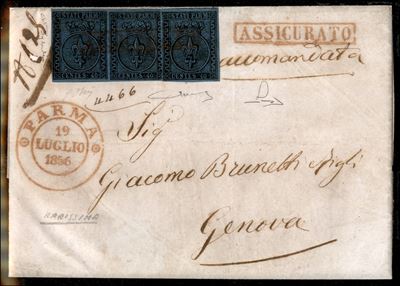 STATI PARM. STATI PARM. STATI PARM.
CENTES. 40 CENTES. 40 CENTES. 40
ASSICURATO
Raccomandata
4466
PARMA
19
LUGLIO
1856
Sig.
Giacomo Brunetti Figli
Genova
RARISSIMA